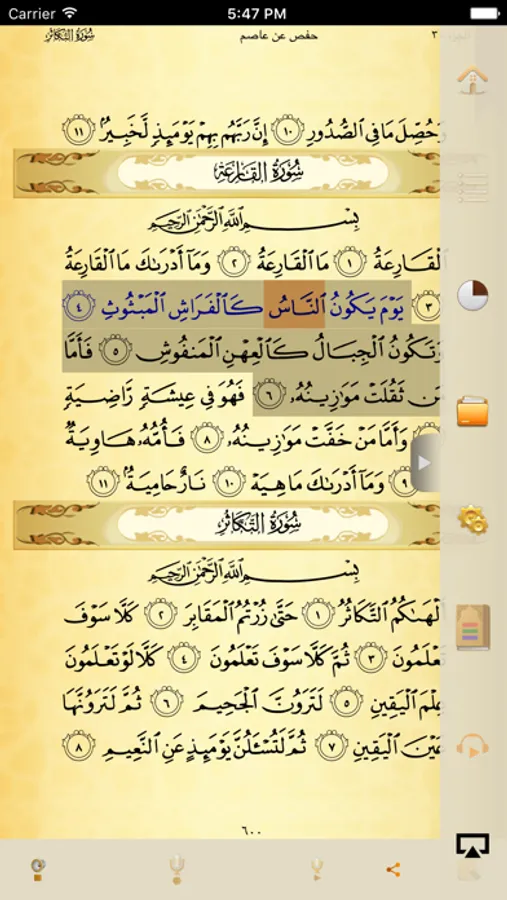 Carrier 5:47 PM
سُورَةُ التَّكَاثُرِ حفص عن عاصم ٣
وَحُصِّلَ مَا فِي ٱلصُّدُورِ ١٠ إِنَّ رَبَّهُم بِهِمۡ يَوۡمَئِذٖ لَّخَبِيرُۢ ١١
سُورَةُ القَارِعَةِ
بِسۡمِ ٱللَّهِ ٱلرَّحۡمَٰنِ ٱلرَّحِيمِ
ٱلۡقَارِعَةُ ١ مَا ٱلۡقَارِعَةُ ٢ وَمَآ أَدۡرَىٰكَ مَا ٱلۡقَارِعَةُ
٣ يَوۡمَ يَكُونُ ٱلنَّاسُ كَٱلۡفَرَاشِ ٱلۡمَبۡثُوثِ ٤
وَتَكُونُ ٱلۡجِبَالُ كَٱلۡعِهۡنِ ٱلۡمَنفُوشِ ٥ فَأَمَّا
مَن ثَقُلَتۡ مَوَٰزِينُهُۥ ٦ فَهُوَ فِي عِيشَةٖ رَّاضِيَةٖ
وَأَمَّا مَنۡ خَفَّتۡ مَوَٰزِينُهُۥ ٨ فَأُمُّهُۥ هَاوِيَةٞ
٩ وَمَآ أَدۡرَىٰكَ مَا هِيَهۡ ١٠ نَارٌ حَامِيَةُۢ ١١
سُورَةُ التَّكَاثُرِ
بِسۡمِ ٱللَّهِ ٱلرَّحۡمَٰنِ ٱلرَّحِيمِ
أَلۡهَىٰكُمُ ٱلتَّكَاثُرُ ١ حَتَّىٰ زُرۡتُمُ ٱلۡمَقَابِرَ ٢ كَلَّا سَوۡفَ
تَعۡلَمُونَ ٣ ثُمَّ كَلَّا سَوۡفَ تَعۡلَمُونَ ٤ كَلَّا لَوۡ تَعۡلَمُونَ
عِلۡمَ ٱلۡيَقِينِ ٥ لَتَرَوُنَّ ٱلۡجَحِيمَ ٦ ثُمَّ لَتَرَوُنَّهَا
عَيۡنَ ٱلۡيَقِينِ ٧ ثُمَّ لَتُسۡـَٔلُنَّ يَوۡمَئِذٍ عَنِ ٱلنَّعِيمِ ٨
٦٠٠